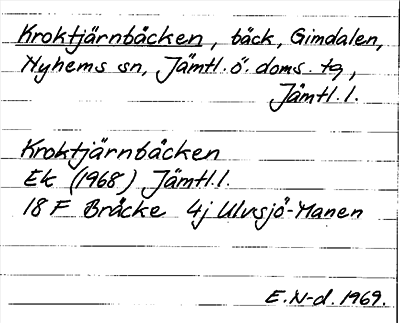 Kroktjärnbäcken, bäck, Gimdalen,
Nyhems sn, Jämtl. ö. doms. tg,
Jämtl. l.
Kroktjärnbäcken
Ek (1968) Jämtl. l.
18 F Bräcke 4j Ulvsjö-Manen
E. N-d. 1969.